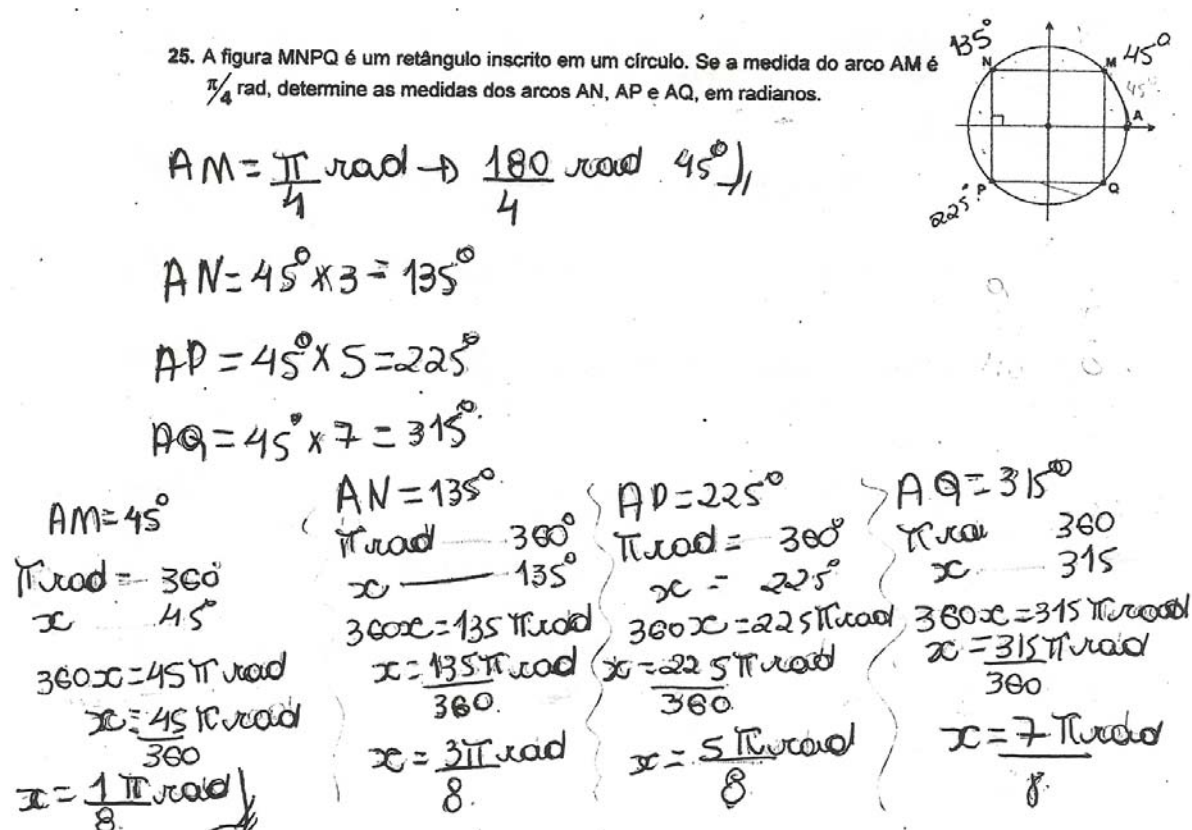 25. A figura MNPQ é um retângulo inscrito em um círculo. Se a medida do arco AM é
π/4 rad, determine as medidas dos arcos AN, AP e AQ, em radianos.
135° N M 45°
45°
A
225° P Q
AM = π/4 rad → 180/4 rad 45°
AN = 45° x 3 = 135°
AP = 45° x 5 = 225°
AQ = 45° x 7 = 315°
AM = 45°
π rad = 360°
x 45°
360x = 45 π rad
x = 45 π rad/360
x = 1 π rad/8
AN = 135°
π rad 360°
x — 135°
360x = 135 π rad
x = 135 π rad/360
x = 3π rad/8
AP = 225°
π rad = 360°
x = 225°
360x = 225 π rad
x = 225 π rad/360
x = 5 π rad/8
AQ = 315°
π ra 360
x 315
360x = 315 π rad
x = 315 π rad/360
x = 7 π rad/8